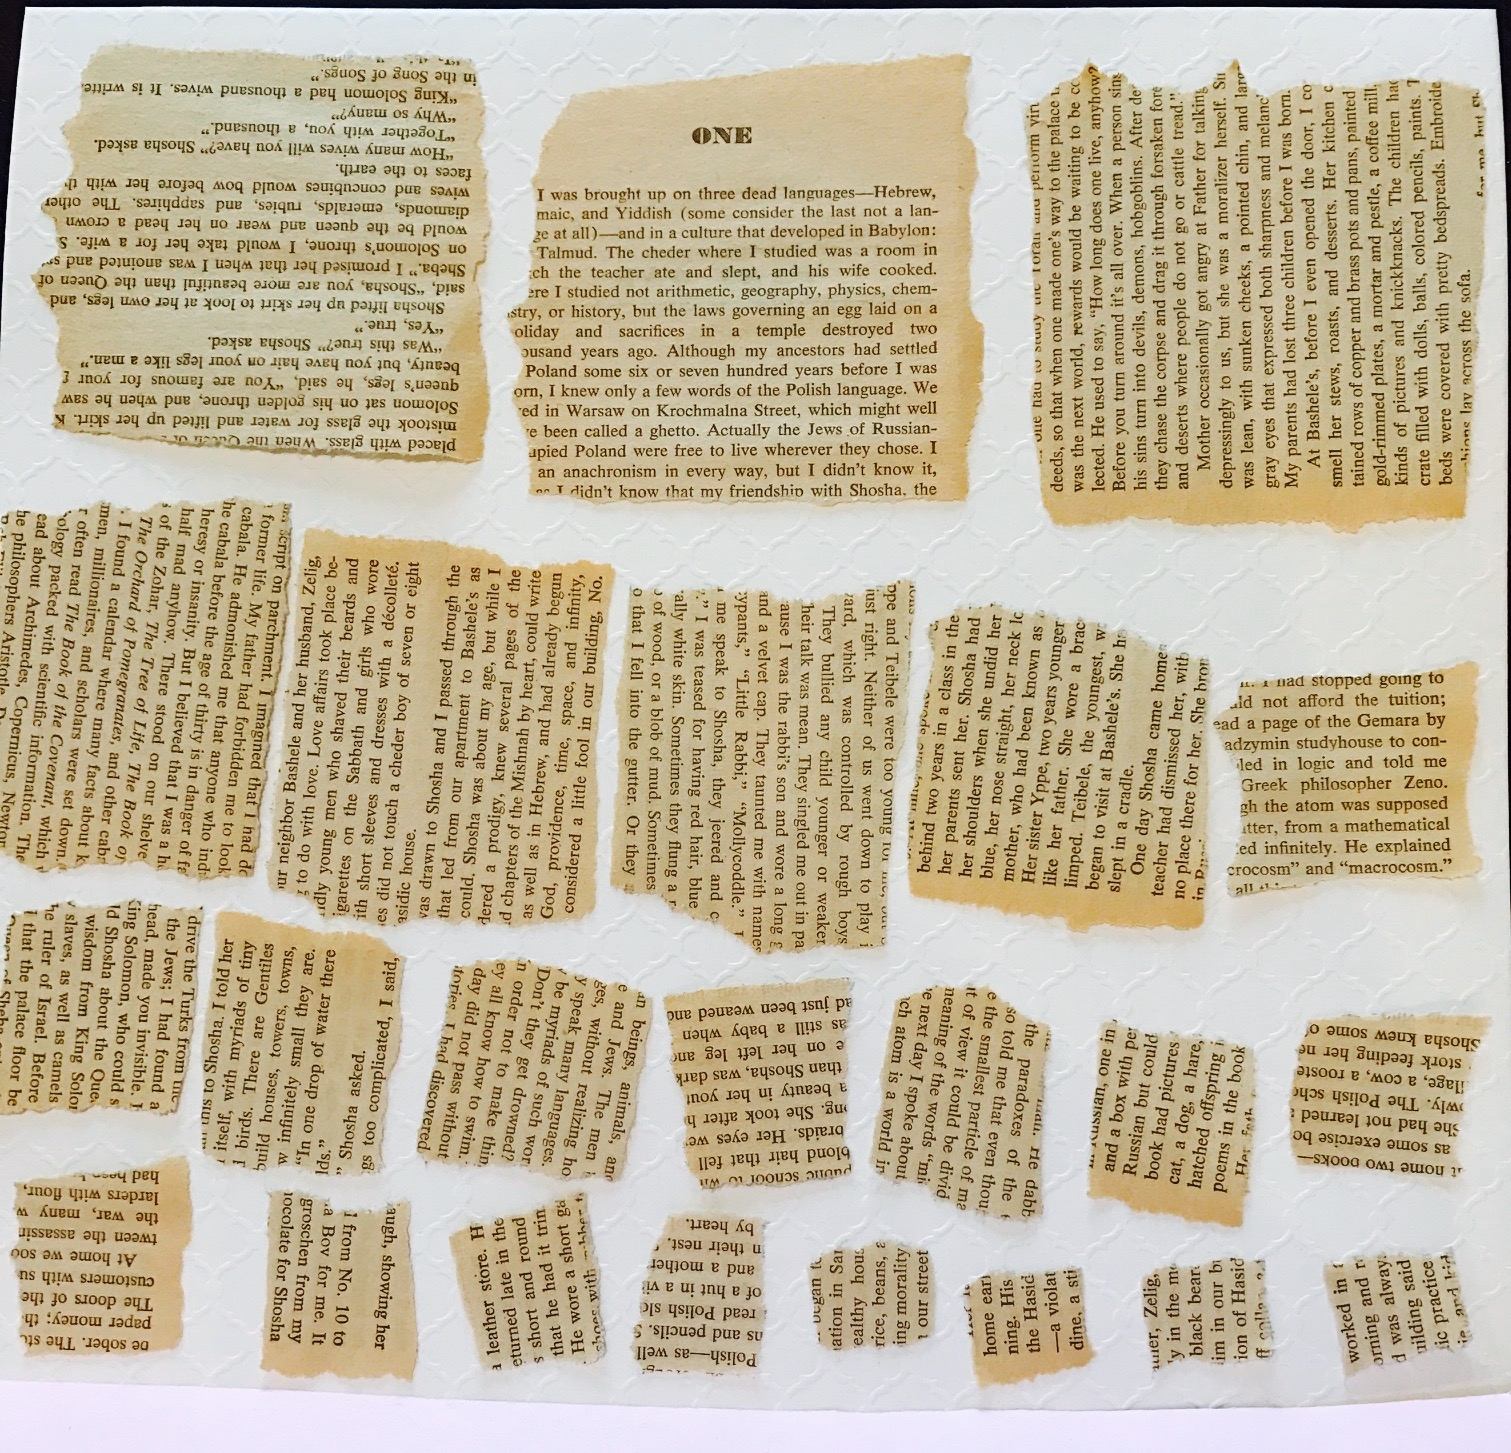 Placed with glass. When the Queen of
mistook the glass for water and lifted up her skirt. K
Solomon sat on his golden throne, and when he saw
queen's legs, he said, “You are famous for your
beauty, but you have hair on your legs like a man.”
“Was this true?” Shosha asked.
“Yes, true.”
Shosha lifted up her skirt to look at her own legs, and
said, “Shosha, you are more beautiful than the Queen of
Sheba.” I promised her that when I was anointed and
on Solomon's throne, I would take her for a wife. S
would be the queen and wear on her head a crown
diamonds, emeralds, rubies, and sapphires. The other
wives and concubines would bow before her with
faces to the earth.
“How many wives will you have?” Shosha asked.
“Together with you, a thousand.”
“Why so many?”
“King Solomon had a thousand wives. It is writte
in the Song of Songs.”
ONE
I was brought up on three dead languages—Hebrew,
maic, and Yiddish (some consider the last not a lan-
ge at all)—and in a culture that developed in Babylon:
Talmud. The cheder where I studied was a room in
ch the teacher ate and slept, and his wife cooked.
ere I studied not arithmetic, geography, physics, chem-
stry, or history, but the laws governing an egg laid on a
oliday and sacrifices in a temple destroyed two
ousand years ago. Although my ancestors had settled
Poland some six or seven hundred years before I was
orn, I knew only a few words of the Polish language. We
ed in Warsaw on Krochmalna Street, which might well
e been called a ghetto. Actually the Jews of Russian-
upied Poland were free to live wherever they chose. I
an anachronism in every way, but I didn't know it,
as I didn't know that my friendship with Shosha, the
one had to study the Torah and perform
deeds, so that when one made one's way to the palace
was the next world, rewards would be waiting to be co
lected. He used to say, “How long does one live, anyhow?
Before you turn around it's all over. When a person sins
his sins turn into devils, demons, hobgoblins. After de
they chase the corpse and drag it through forsaken fore
and deserts where people do not go or cattle tread.”
Mother occasionally got angry at Father for talking
depressingly to us, but she was a moralizer herself. Sh
was lean, with sunken cheeks, a pointed chin, and large
gray eyes that expressed both sharpness and melanc
My parents had lost three children before I was born.
At Bashele's, before I even opened the door, I co
smell her stews, roasts, and desserts. Her kitchen c
tained rows of copper and brass pots and pans, painted
gold-rimmed plates, a mortar and pestle, a coffee mill,
kinds of pictures and knickknacks. The children had
crate filled with dolls, balls, colored pencils, paints. T
beds were covered with pretty bedspreads. Embroide
hions lay across the sofa.
for me, but
script on parchment. I imagined that I had d
former life. My father had forbidden me to look
cabala. He admonished me that anyone who ind
he cabala before the age of thirty is in danger of fa
heresy or insanity. But I believed that I was a h
half mad anyhow. There stood on our shelve
of the Zohar, The Tree of Life, The Book of
The Orchard of Pomegranates, and other cab
I found a calendar where many facts about k
men, millionaires, and scholars were set down.
r often read The Book of the Covenant, which
ology packed with scientific information. The
ead about Archimedes, Copernicus, Newton
he philosophers Aristotle,
ur neighbor Bashele and her husband, Zelig,
g to do with love. Love affairs took place be-
dly young men who shaved their beards and
igarettes on the Sabbath and girls who wore
ith short sleeves and dresses with a décolleté.
es did not touch a cheder boy of seven or eight
asidic house.
was drawn to Shosha and I passed through the
that led from our apartment to Bashele's as
could. Shosha was about my age, but while I
dered a prodigy, knew several pages of the
d chapters of the Mishnah by heart, could write
as well as in Hebrew, and had already begun
God, providence, time, space, and infinity,
considered a little fool in our building, No.
ppe and Teibele were too young for me, but
just right. Neither of us went down to play i
ard, which was controlled by rough boys
They bullied any child younger or weaker
heir talk was mean. They singled me out in pa
ause I was the rabbi's son and wore a long
and a velvet cap. They taunted me with names
ypants,” “Little Rabbi,” “Mollycoddle.”
me speak to Shosha, they jeered and c
.” I was teased for having red hair, blue
rally white skin. Sometimes they flung a r
of wood, or a blob of mud. Sometimes
o that I fell into the gutter. Or they
behind two years in a class in the
her parents sent her. Shosha had
her shoulders when she undid her
blue, her nose straight, her neck lo
mother, who had been known as
Her sister Yppe, two years younger
like her father. She wore a brac
limped. Teibele, the youngest, w
began to visit at Bashele's. She ha
slept in a cradle.
One day Shosha came home
teacher had dismissed her, with
no place there for her. She brou
I had stopped going to
uld not afford the tuition;
ead a page of the Gemara by
adzymin studyhouse to con-
led in logic and told me
Greek philosopher Zeno.
gh the atom was supposed
tter, from a mathematical
ed infinitely. He explained
crocosm” and “macrocosm.”
drive the Turks from the
the Jews; I had found a
head, made you invisible. I
King Solomon, who could
d Shosha about the Que
wisdom from King Solo
slaves, as well as camels
he ruler of Israel. Before
that the palace floor be
this to Shosha. I told her
itself, with myriads of tiny
birds. There are Gentiles
build houses, towers, towns,
w infinitely small they are.
“In one drop of water there
lds.”
” Shosha asked.
gs too complicated, I said,
an beings, animals, an
e and Jews. The men
ges, without realizing ho
y speak many languages.
be myriads of such wor
Don't they get drowned?
n order not to make thin
ey all know how to swim.
day did not pass without
tories I had discovered
public school to wh
blond hair that fell
braids. Her eyes we
ng. She took after h
a beauty in her yout
than Shosha, was dark
e on her left leg and
as still a baby when
ad just been weaned and
He dabb
the paradoxes of the
so told me that even thou
e the smallest particle of ma
t of view it could be divid
meaning of the words “mi
e next day I spoke about
ch atom is a world in
Russian, one in
and a box with pe
Russian but could
book had pictures
cat, a dog, a hare,
hatched offspring i
poems in the book
t home two books—
as some exercise bo
She had not learned
owly. The Polish scho
llage, a cow, a rooste
stork feeding her ne
Shosha knew some o
be sober. The sto
paper money; th
The doors of the
customers with su
At home we soo
tween the assassin
the war, many w
larders with flour,
had been
augh, showing her
from No. 10 to
a Bov for me. It
groschen from my
ocolate for Shosha
a leather store. H
eturned late in the
s short and round
that he had it trim
He wore a short ga
shoes with rubber
Polish—as well
us and pencils. S
read Polish slo
of a hut in a vi
and a mother
n their nest.
by heart.
began to
ation in Sar
ealthy hous
rice, beans, a
ing morality
our street
home earl
ning. His
the Hasid
—a violat
dine, a sti
ther, Zelig,
y in the mo
black beard
im in our bu
ion of Hasid
worked in
orning and r
d was alway
uilding said
ic practice